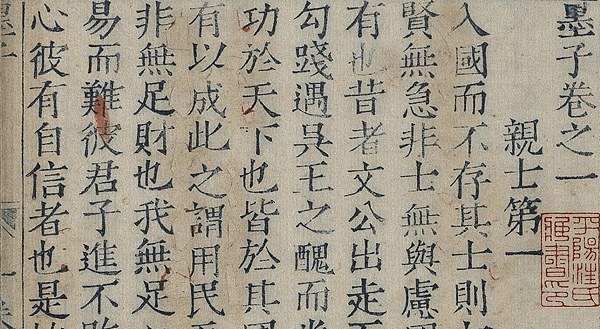 墨子卷之一
親士第一
入國而不存其士則
賢無急非士無與慮國
有也昔者文公出走
勾踐遇吳王之醜而
功於天下也皆於其國
有以成此之謂用民
非無足財也我無足
易而難彼君子進不
心彼有自信者也是
墨子
平陽汪氏
藏書印